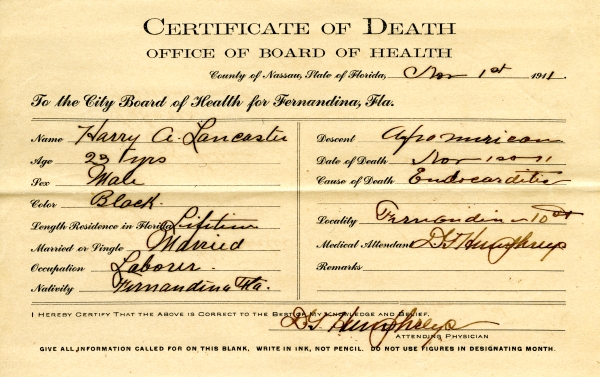 CERTIFICATE OF DEATH
OFFICE OF BOARD OF HEALTH
County of Nassau, State of Florida, Nov 1st 1911.
To the City Board of Health for Fernandina, Fla.
Name Harry A. Lancaster
Age 23 yrs
Sex Male
Color Black.
Length Residence in Florida Lifetime
Married or Single Married
Occupation Laborer.
Nativity Fernandina Fla.
Descent Afromerican
Date of Death Nov 1
Cause of Death Endocarditis
Locality Fernandina 10 St
Medical Attendant Humphreys
Remarks
I HEREBY CERTIFY THAT THE ABOVE IS CORRECT TO THE BEST OF MY KNOWLEDGE AND BELIEF.
Humphreys
ATTENDING PHYSICIAN
GIVE ALL INFORMATION CALLED FOR ON THIS BLANK. WRITE IN INK, NOT PENCIL. DO NOT USE FIGURES IN DESIGNATING MONTH.